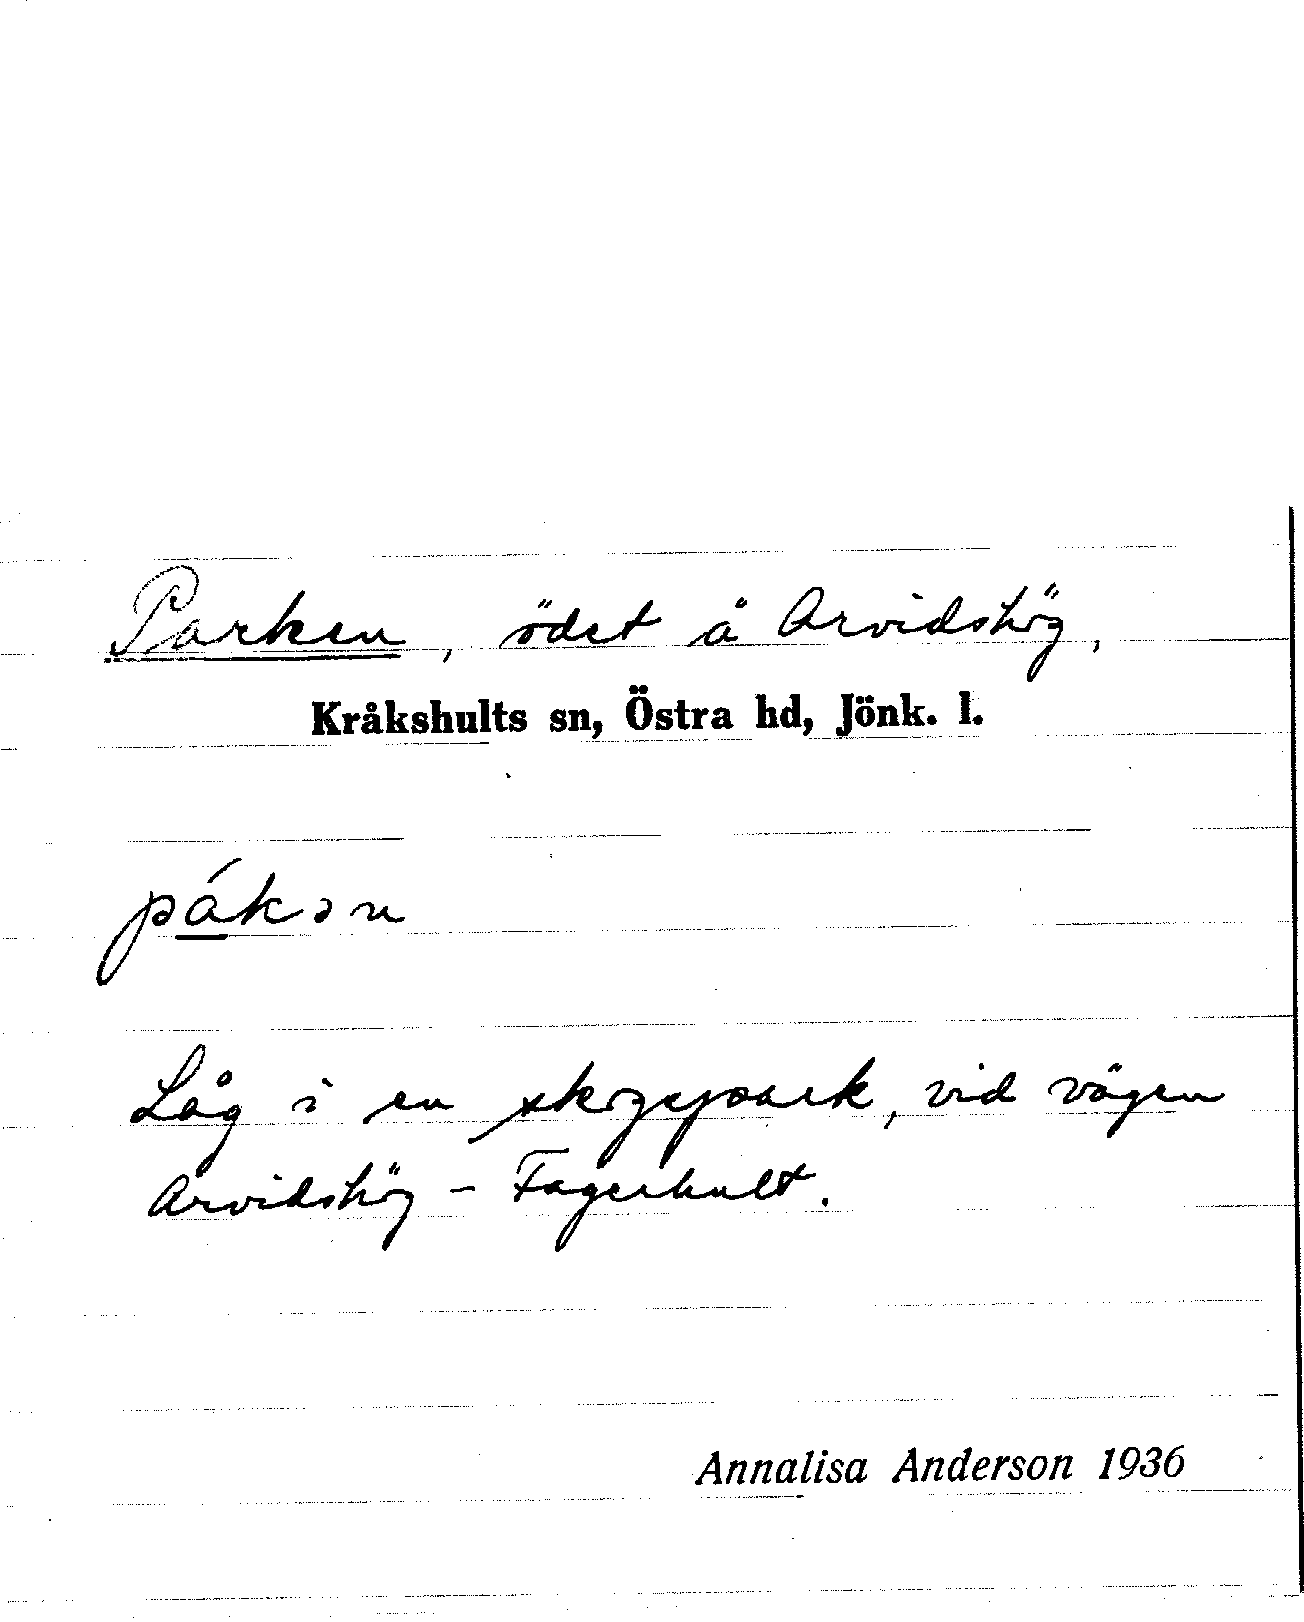 Parken, ödet å Arvidshög,
Kråkshults sn, Östra hd, Jönk. l.
pákən
Låg i en skogspark, vid vägen
Arvidshög – Fagerhult.
Annalisa Anderson 1936